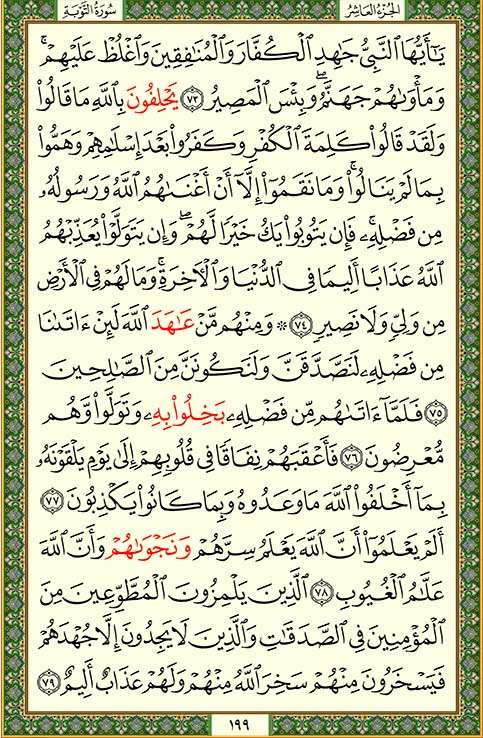 الجُزءُ العَاشِرُ سُورَةُ التَّوْبَةِ
يَـٰٓأَيُّهَا ٱلنَّبِيُّ جَـٰهِدِ ٱلْكُفَّارَ وَٱلْمُنَـٰفِقِينَ وَٱغْلُظْ عَلَيْهِمْ ۚ
وَمَأْوَىٰهُمْ جَهَنَّمُ ۖ وَبِئْسَ ٱلْمَصِيرُ ٧٣ يَحْلِفُونَ بِٱللَّهِ مَا قَالُوا۟
وَلَقَدْ قَالُوا۟ كَلِمَةَ ٱلْكُفْرِ وَكَفَرُوا۟ بَعْدَ إِسْلَـٰمِهِمْ وَهَمُّوا۟
بِمَا لَمْ يَنَالُوا۟ ۚ وَمَا نَقَمُوٓا۟ إِلَّآ أَنْ أَغْنَىٰهُمُ ٱللَّهُ وَرَسُولُهُۥ
مِن فَضْلِهِۦ ۚ فَإِن يَتُوبُوا۟ يَكُ خَيْرًا لَّهُمْ ۖ وَإِن يَتَوَلَّوْا۟ يُعَذِّبْهُمُ
ٱللَّهُ عَذَابًا أَلِيمًا فِى ٱلدُّنْيَا وَٱلْـَٔاخِرَةِ ۚ وَمَا لَهُمْ فِى ٱلْأَرْضِ
مِن وَلِىٍّ وَلَا نَصِيرٍ ٧٤ ۞ وَمِنْهُم مَّنْ عَـٰهَدَ ٱللَّهَ لَئِنْ ءَاتَىٰنَا
مِن فَضْلِهِۦ لَنَصَّدَّقَنَّ وَلَنَكُونَنَّ مِنَ ٱلصَّـٰلِحِينَ
٧٥ فَلَمَّآ ءَاتَىٰهُم مِّن فَضْلِهِۦ بَخِلُوا۟ بِهِۦ وَتَوَلَّوا۟ وَّهُم
مُّعْرِضُونَ ٧٦ فَأَعْقَبَهُمْ نِفَاقًا فِى قُلُوبِهِمْ إِلَىٰ يَوْمِ يَلْقَوْنَهُۥ
بِمَآ أَخْلَفُوا۟ ٱللَّهَ مَا وَعَدُوهُ وَبِمَا كَانُوا۟ يَكْذِبُونَ ٧٧
أَلَمْ يَعْلَمُوٓا۟ أَنَّ ٱللَّهَ يَعْلَمُ سِرَّهُمْ وَنَجْوَىٰهُمْ وَأَنَّ ٱللَّهَ
عَلَّـٰمُ ٱلْغُيُوبِ ٧٨ ٱلَّذِينَ يَلْمِزُونَ ٱلْمُطَّوِّعِينَ مِنَ
ٱلْمُؤْمِنِينَ فِى ٱلصَّدَقَـٰتِ وَٱلَّذِينَ لَا يَجِدُونَ إِلَّا جُهْدَهُمْ
فَيَسْخَرُونَ مِنْهُمْ سَخِرَ ٱللَّهُ مِنْهُمْ وَلَهُمْ عَذَابٌ أَلِيمٌ ٧٩
١٩٩